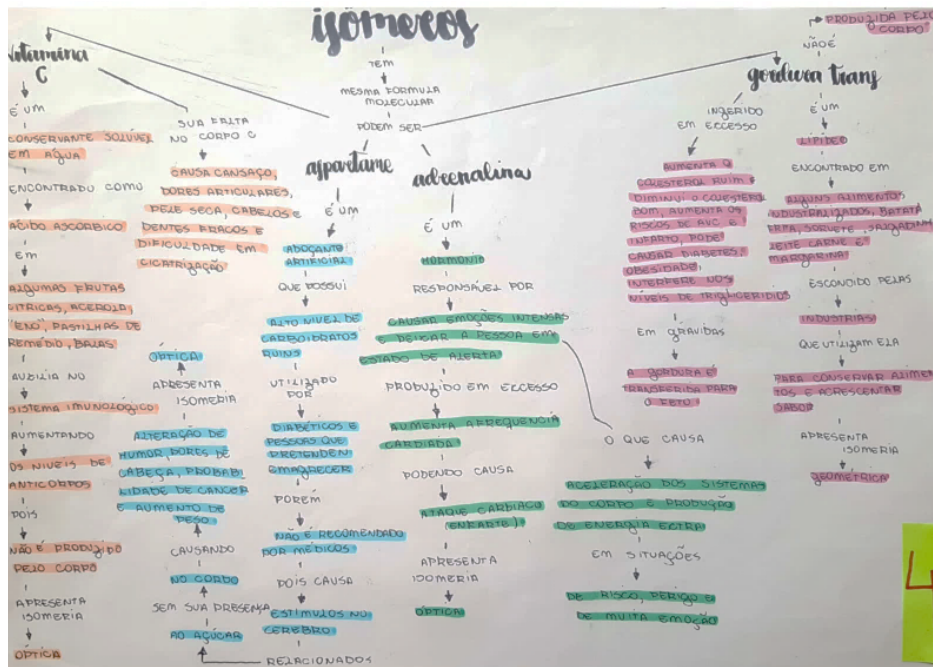 isômeros
TEM
MESMA FORMULA
MOLECULAR
PODEM SER
vitamina
C
É UM
CONSERVANTE SOLÚVEL
EM ÁGUA
ENCONTRADO COMO
ÁCIDO ASCORBICO
EM
ALGUMAS FRUTAS
CITRICAS, ACEROLA,
"ENO", PASTILHAS DE
REMÉDIO, BALAS
AUXILIA NO
SISTEMA IMUNOLÓGICO
AUMENTANDO
OS NIVEIS DE
ANTICORPOS
POIS
NÃO É PRODUZIDO
PELO CORPO
APRESENTA
ISOMERIA
ÓPTICA
SUA FALTA
NO CORPO C
CAUSA CANSAÇO,
DORES ARTICULARES,
PELE SECA, CABELOS E
DENTES FRACOS E
DIFICULDADE EM
CICATRIZAÇÃO
aspartame
É UM
ADOÇANTE
ARTIFICIAL
QUE POSSUI
ALTO NIVEL DE
CARBOIDRATOS
RUINS
UTILIZADO
POR
DIABÉTICOS E
PESSOAS QUE
PRETENDEM
EMAGRECER
PORÉM
NÃO É RECOMENDADO
POR MÉDICOS
POIS CAUSA
ESTÍMULOS NO
CEREBRO
RELACIONADOS
AO AÇÚCAR
SEM SUA PRESENÇA
NO CORPO
CAUSANDO
ALTERAÇÃO DE
HUMOR, DORES DE
CABEÇA, PROBABI
LIDADE DE CANCER
E AUMENTO DE
PESO
APRESENTA
ISOMERIA
ÓPTICA
adrenalina
É UM
HORMONIO
RESPONSÁVEL POR
CAUSAR EMOÇÕES INTENSAS
E DEIXAR A PESSOA EM
ESTADO DE ALERTA
PRODUZIDO EM EXCESSO
AUMENTA A FREQUENCIA
CARDIADA
PODENDO CAUSA
ATAQUE CARDÍACO
(ENFARTE)
APRESENTA
ISOMERIA
ÓPTICA
O QUE CAUSA
ACELERAÇÃO DOS SISTEMAS
DO CORPO E PRODUÇÃO
DE ENERGIA EXTRA
EM SITUAÇÕES
DE RISCO, PERIGO E
DE MUITA EMOÇÃO
gordura trans
NÃO É
PRODUZIDA PELO
CORPO
INGERIDO
EM EXCESSO
AUMENTA O
COLESTEROL RUIM E
DIMINUI O COLESTEROL
BOM, AUMENTA OS
RISCOS DE AVC E
INFARTO, PODE
CAUSAR DIABETES,
OBESIDADE,
INTERFERE NOS
NÍVEIS DE TRIGLICERIDIOS
EM GRÁVIDAS
A GORDURA É
TRANSFERIDA PARA
O FETO
É UM
LIPIDEO
ENCONTRADO EM
ALGUNS ALIMENTO,
INDUSTRIALIZADOS, BATATA
FRITA, SORVETE, SALGADINHO
LEITE CARNE E
MARGARINA
ESCONDIDO PELAS
INDUSTRIAS
QUE UTILIZAM ELA
PARA CONSERVAR ALIMEN
TOS E ACRESCENTAR
SABOR
APRESENTA
ISOMERIA
GEOMÉTRICA